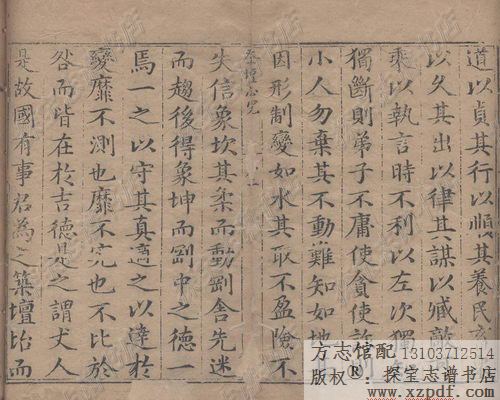 道以貞其行以順其養民
以久其出以律其謀以臧敵
乘以執言時不利以左次獨
獨斷則弟子不庸使貪使詐
小人勿棄其不動難知如地
因形制變如水其取不盈險不
登壇必究
失信象坎其柔而動剛舍先迷
而趨後得象坤而剛中之德一
焉一之以守其真適之以達於
變靡不測也靡不究也不比於
咎而皆在於吉德是之謂丈人
是故國有事君為之築壇而
方志馆配 13103712514
版权® 探宝志谱书店
www.xzpdf.com